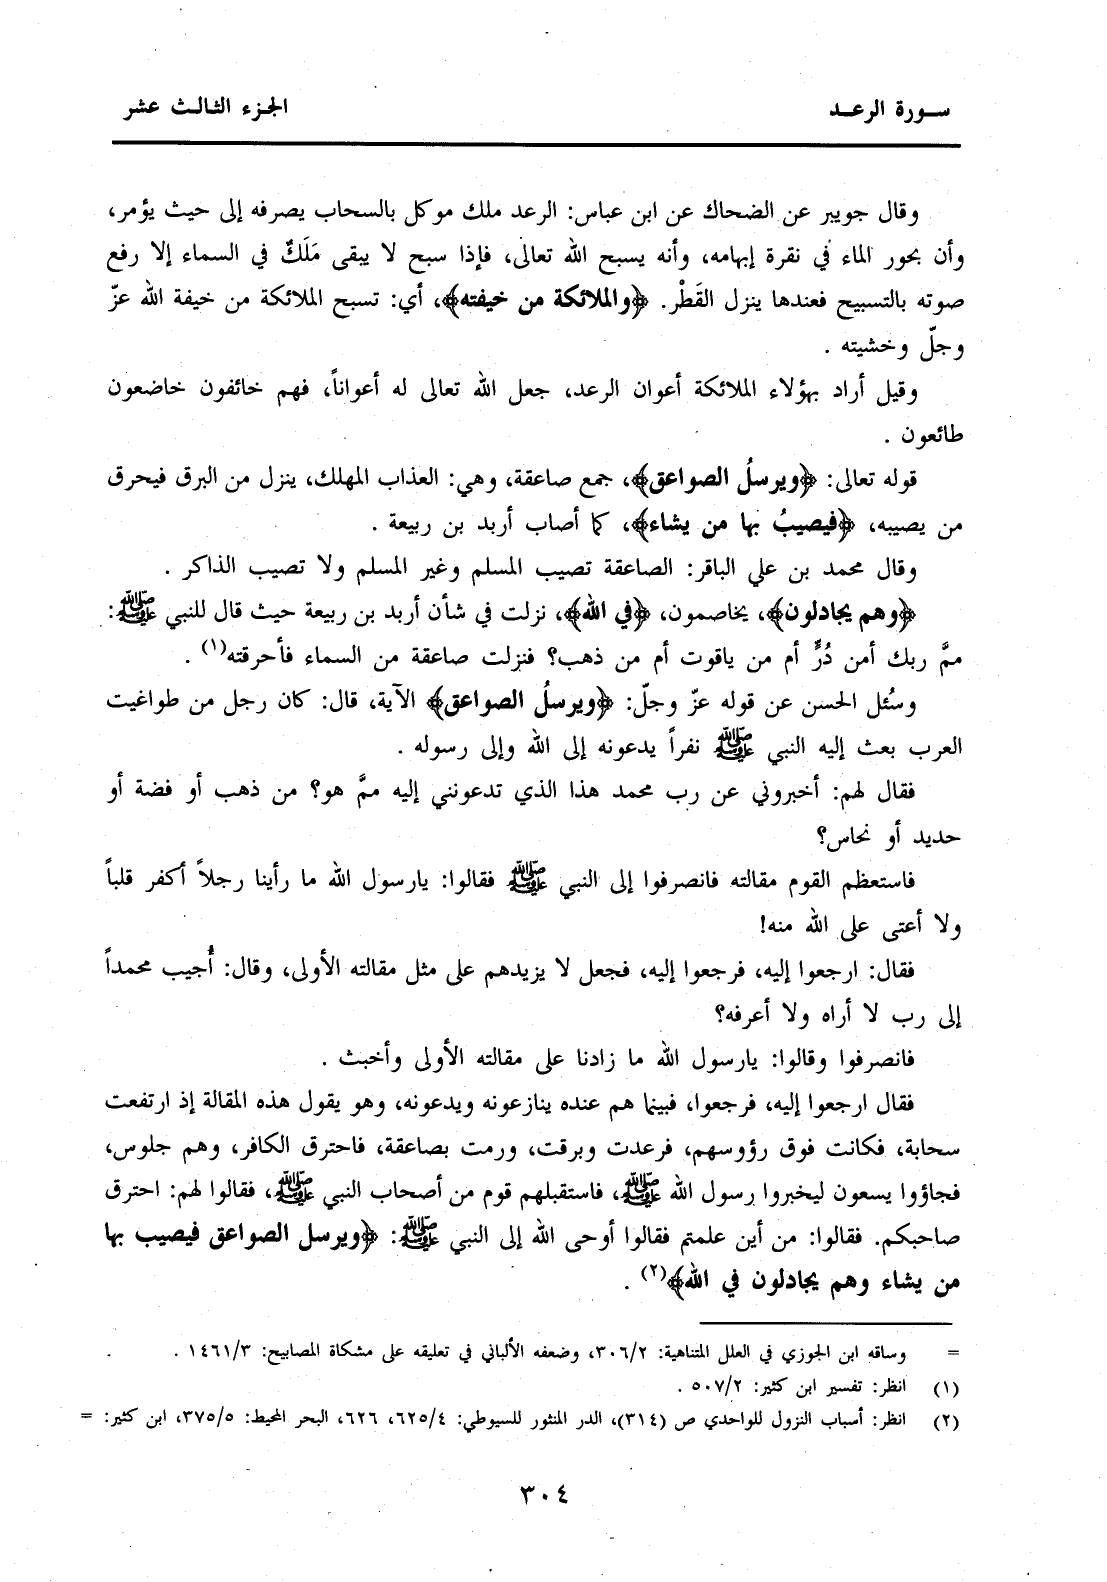 سورة الرعد
الجزء الثالث عشر
وقال جويبر عن الضحاك عن ابن عباس: الرعد ملك موكل بالسحاب يصرفه إلى حيث يؤمر،
وأن بحور الماء في نقرة إبهامه، وأنه يسبح الله تعالى، فإذا سبح لا يبقى مَلَكٌ في السماء إلا رفع
صوته بالتسبيح فعندها ينزل القَطْر. ﴿والملائكة من خيفته﴾، أي: تسبح الملائكة من خيفة الله عزّ
وجلّ وخشيته .
وقيل أراد بهؤلاء الملائكة أعوان الرعد، جعل الله تعالى له أعواناً، فهم خائفون خاضعون
طائعون .
قوله تعالى: ﴿ويرسلُ الصواعق﴾، جمع صاعقة، وهي: العذاب المهلك، ينزل من البرق فيحرق
من يصيبه، ﴿فيصيبُ بها من يشاء﴾، كما أصاب أربد بن ربيعة .
وقال محمد بن علي الباقر: الصاعقة تصيب المسلم وغير المسلم ولا تصيب الذاكر .
﴿وهم يجادلون﴾، يخاصمون، ﴿في الله﴾، نزلت في شأن أربد بن ربيعة حيث قال للنبي ﷺ:
ممَّ ربك أمن دُرٍّ أم من ياقوت أم من ذهب؟ فنزلت صاعقة من السماء فأحرقته(١) .
وسُئل الحسن عن قوله عزّ وجلّ: ﴿ويرسلُ الصواعق﴾ الآية، قال: كان رجل من طواغيت
العرب بعث إليه النبي ﷺ نفراً يدعونه إلى الله وإلى رسوله .
فقال لهم: أخبروني عن رب محمد هذا الذي تدعونني إليه ممَّ هو؟ من ذهب أو فضة أو
حديد أو نحاس؟
فاستعظم القوم مقالته فانصرفوا إلى النبي ﷺ فقالوا: يارسول الله ما رأينا رجلاً أكفر قلباً
ولا أعتى على الله منه!
فقال: ارجعوا إليه، فرجعوا إليه، فجعل لا يزيدهم على مثل مقالته الأولى، وقال: أُجيب محمداً
إلى رب لا أراه ولا أعرفه؟
فانصرفوا وقالوا: يارسول الله ما زادنا على مقالته الأولى وأخبث .
فقال ارجعوا إليه، فرجعوا، فبينما هم عنده ينازعونه ويدعونه، وهو يقول هذه المقالة إذ ارتفعت
سحابة، فكانت فوق رؤوسهم، فرعدت وبرقت، ورمت بصاعقة، فاحترق الكافر، وهم جلوس،
فجاؤوا يسعون ليخبروا رسول الله ﷺ، فاستقبلهم قوم من أصحاب النبي ﷺ، فقالوا لهم: احترق
صاحبكم. فقالوا: من أين علمتم فقالوا أوحى الله إلى النبي ﷺ: ﴿ويرسل الصواعق فيصيب بها
من يشاء وهم يجادلون في الله﴾(٢) .
= وساقه ابن الجوزي في العلل المتناهية: ٣٠٦/٢، وضعفه الألباني في تعليقه على مشكاة المصابيح: ١٤٦١/٣ .
(١) انظر: تفسير ابن كثير: ٥٠٧/٢ .
(٢) انظر: أسباب النزول للواحدي ص (٣١٤)، الدر المنثور للسيوطي: ٦٢٥/٤، ٦٢٦، البحر المحيط: ٣٧٥/٥، ابن كثير: =
٣٠٤